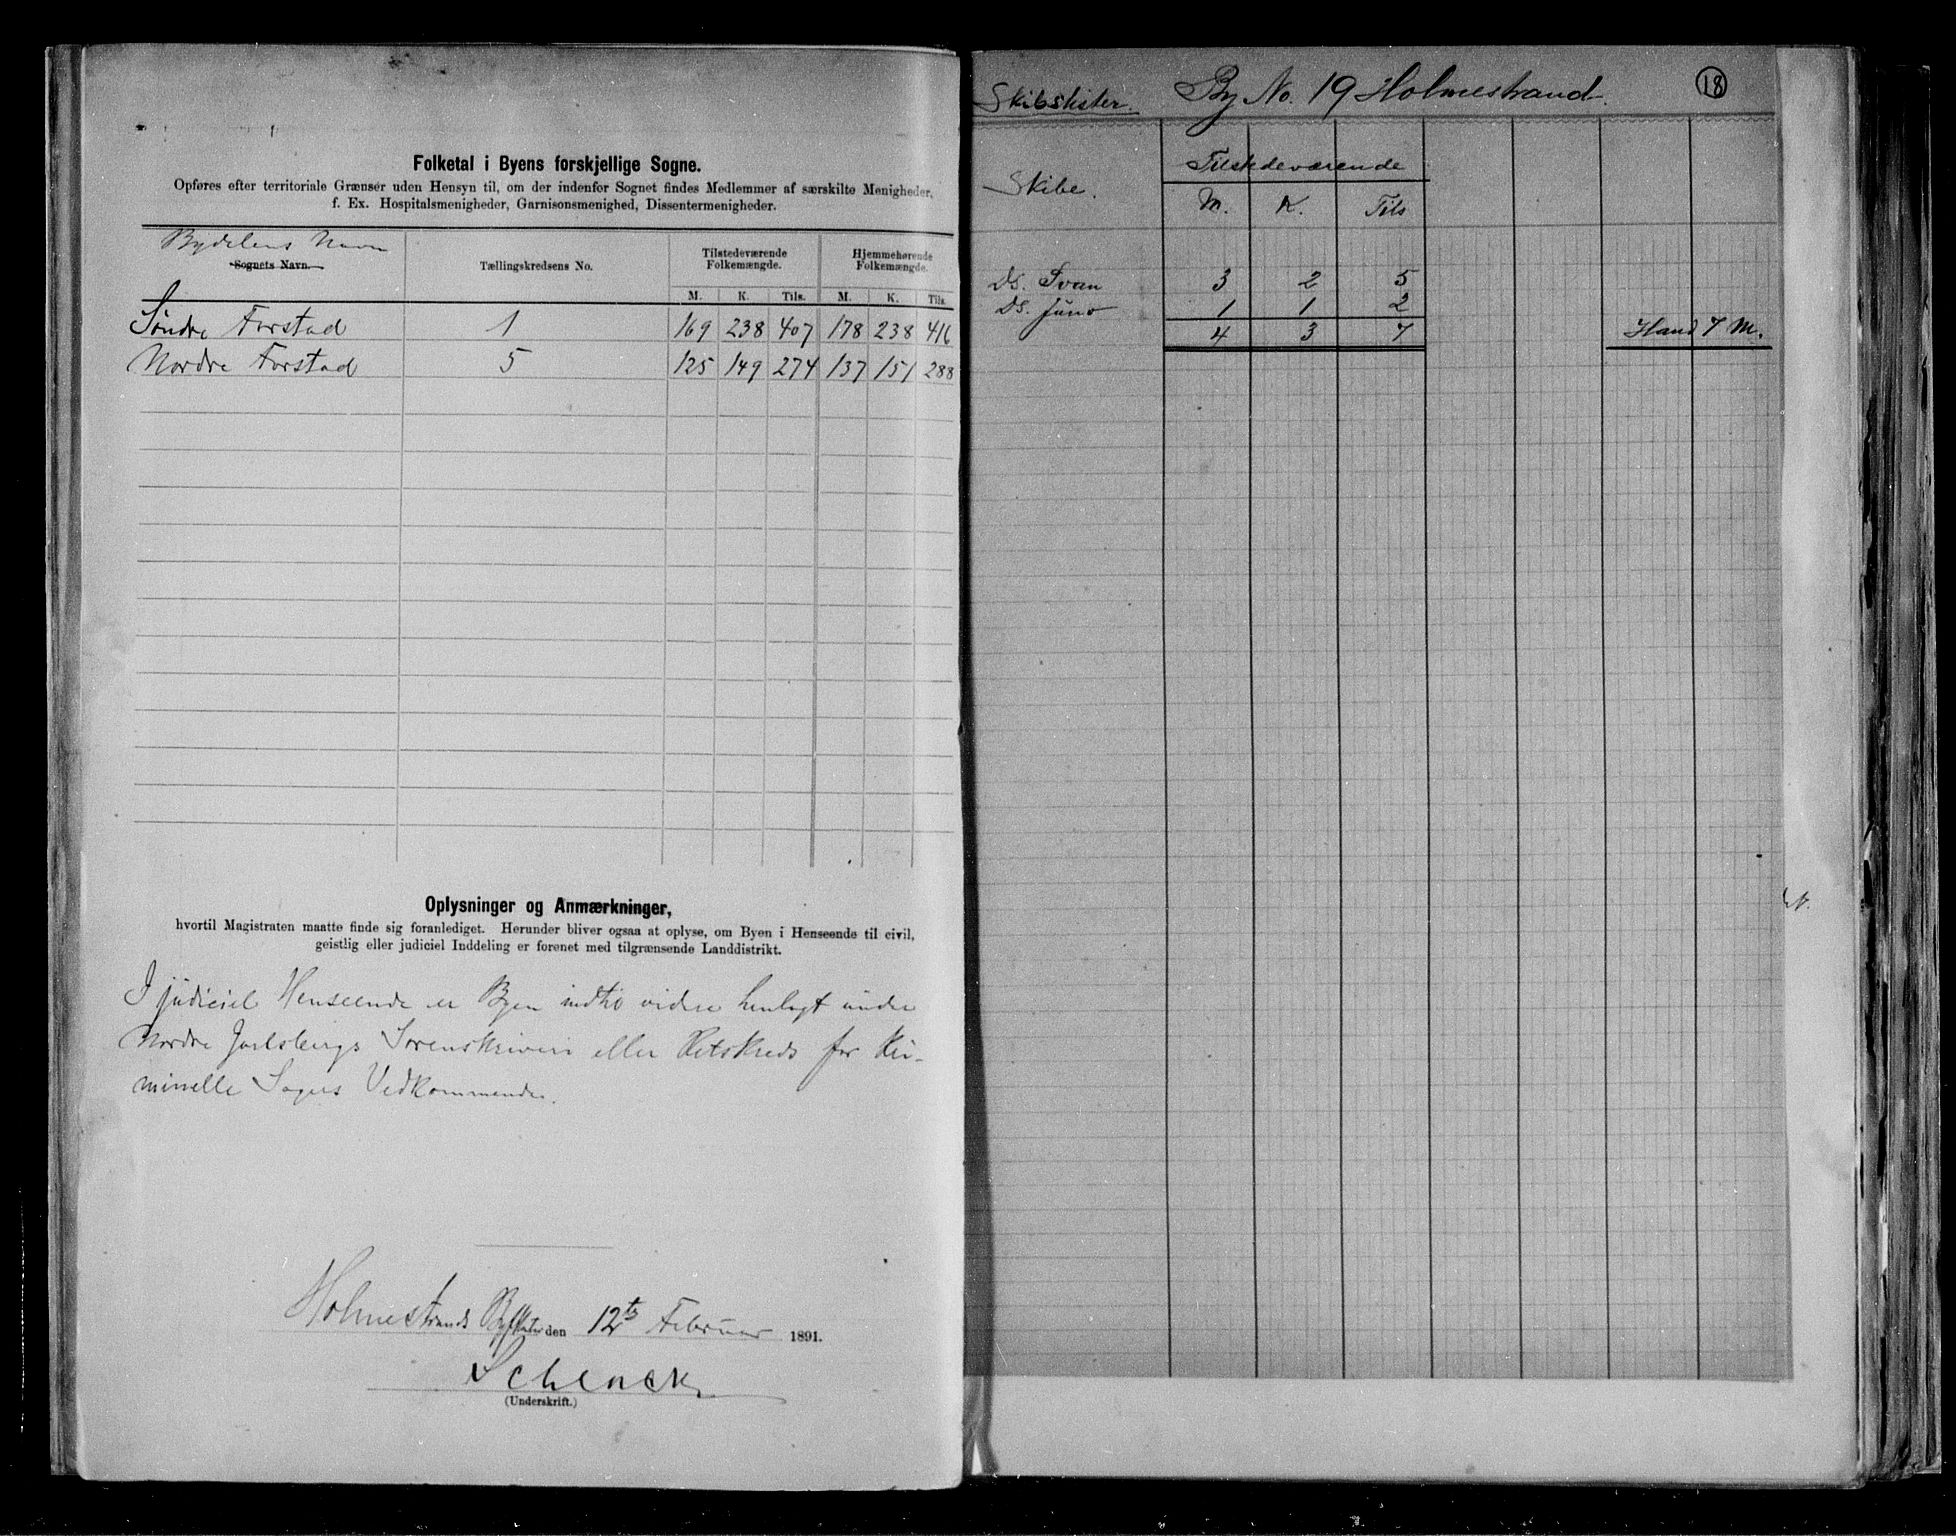 Folketal i Byens forskjellige Sogne.
Opføres efter territoriale Grænser uden Hensyn til, om der indenfor Sognet findes Medlemmer af særskilte Menigheder,
f. Ex. Hospitalsmenigheder, Garnisonsmenighed, Dissentermenigheder.
Bydelens Navn
Sognets Navn. Tællingskredsens No. Tilstedeværende Folkemængde. Hjemmehørende Folkemængde.
M. K. Tils. M. K. Tils.
Søndre Forstad 1 169 238 407 178 238 416
Nordre Forstad 5 125 149 274 137 151 288
Oplysninger og Anmærkninger,
hvortil Magistraten maatte finde sig foranlediget. Herunder bliver ogsaa at oplyse, om Byen i Henseende til civil,
geistlig eller judiciel Inddeling er forenet med tilgrænsende Landdistrikt.
I judiciel Henseende er Byen indtil videre henlagt under
Nordre Jarlsbergs Sorenskriveri eller Retskreds for Kri-
minelle Sagers Vedkommende.
Holmestrands Byfogd den 12te Februar 1891.
Schenck
(Underskrift.)
Skibslister. By No. 19 Holmestrand. 18
Tilstedeværende
Skibe. M. K. Tils
Ds. Svan 3 2 5
Ds. Juno 1 1 2
4 3 7 7 M.